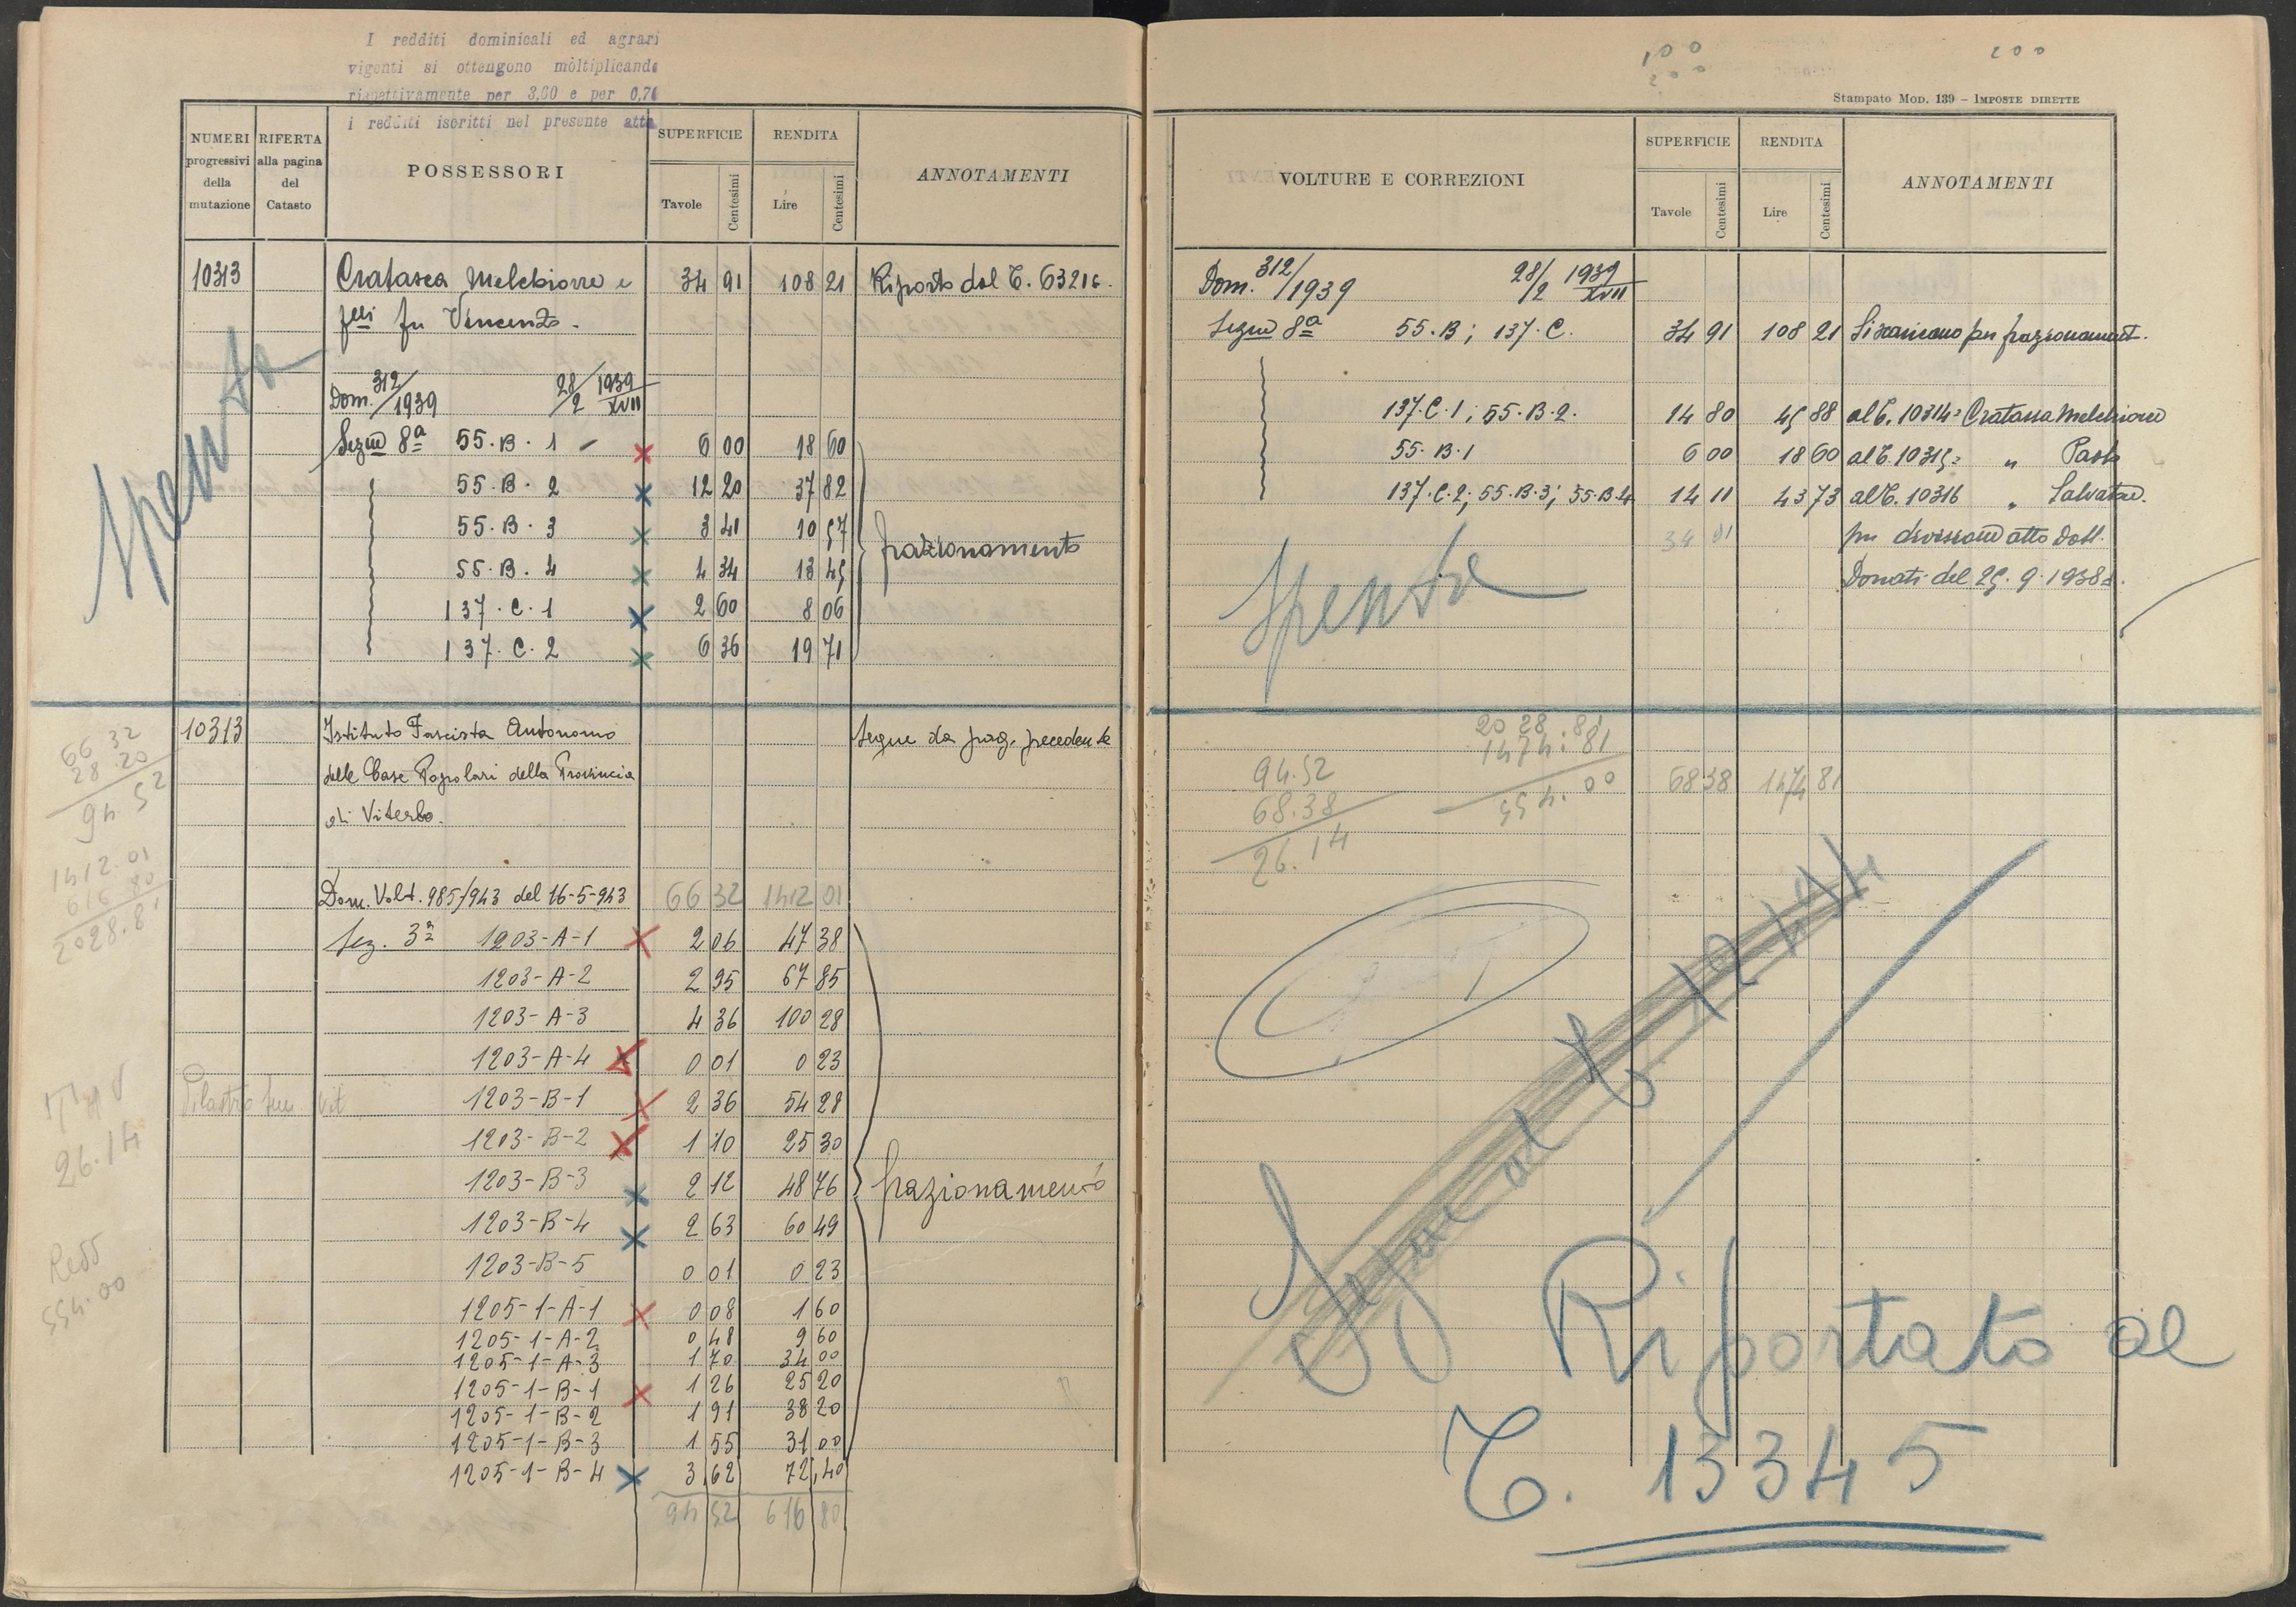 I redditi dominicali ed agrari
vigenti si ottengono moltiplicando
rispettivamente per 3,60 e per 0,76
i redditi iscritti nel presente atto
NUMERI progressivi della mutazione
RIFERTA alla pagina del Catasto
POSSESSORI
SUPERFICIE
Tavole Centesimi
RENDITA
Lire Centesimi
ANNOTAMENTI
10313 Cratassa Melchiorre e 34 91 108 21 Riporto dal T. 6321
flli fu Vincenzo.
Dom. 312/1939 28/2 1939 XVII
Segue 8ª 55.B.1 6 00 18 60
55.B.2 12 20 37 82
55.B.3 3 41 10 57
55.B.4 4 34 13 45
137.C.1 2 60 8 06
137.C.2 6 36 19 71
frazionamento
Spenta
10313 Istituto Fascista Autonomo Segue da pag. precedente
delle Case Popolari della Provincia
di Viterbo.
Dom. Volt. 985/943 del 16-5-943 66 32 1412 01
Sez. 3ª 1203-A-1 2 06 47 38
1203-A-2 2 95 67 85
1203-A-3 4 36 100 28
1203-A-4 0 01 0 23
1203-B-1 2 36 54 28
1203-B-2 1 10 25 30
1203-B-3 2 12 48 76
1203-B-4 2 63 60 49
1203-B-5 0 01 0 23
1205-1-A-1 0 08 1 60
1205-1-A-2 0 48 9 60
1205-1-A-3 1 70 34 00
1205-1-B-1 1 26 25 20
1205-1-B-2 1 91 38 20
1205-1-B-3 1 55 31 00
1205-1-B-4 3,62 72,40
94 52 616 80
frazionamento
66 32
28.20
94 52
1412.01
616 80
2028.81
26.14
Redd
554.00
100
200
200
Stampato Mod. 139 – Imposte dirette
VOLTURE E CORREZIONI
SUPERFICIE
Tavole Centesimi
RENDITA
Lire Centesimi
ANNOTAMENTI
Dom. 312/1939 28/2 1939 XVII
Segue 8ª 55.B; 137.C. 34 91 108 21 Si scaricano per frazionament.
137.C.1; 55.B.2. 14 80 45 88 al T. 10314= Cratassa Melchiorre
55.B.1 6 00 18 60 al T. 10315= " Paolo
137.C.2; 55.B.3; 55.B.4 14 11 43 73 al T. 10316 " Salvatore.
34 91 per divisione atto Dott.
Donati del 25.9.1938
Spenta
94.52
68.38
26.14
2028.81
1474.81
554.00
68 38 1474 81
Segue al T 12144
Riportato al
T. 13345